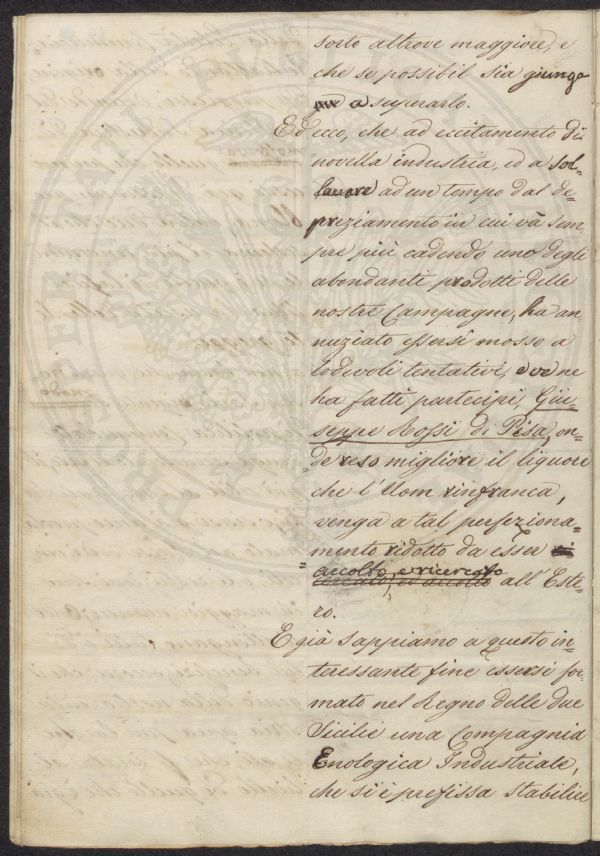 sorto altrove maggiore, e
che se possibil sia giunga
a superarlo.
Ed ecco, che ad eccitamento di
novella industria, ed a sol-
levare ad un tempo dal de-
preziamento in cui và sem-
pre più cadendo uno degli
abondanti prodotti delle
nostre Campagne, ha an-
nuziato essersi mosso a
lodevoli tentativi, e ve ne
ha fatti partecipi, Giu-
seppe Rossi di Pisa, on-
de reso migliore il liquore
che l'Uom rinfranca,
venga a tal perfeziona-
mento ridotto da esser
accolto, e ricercato
cercato, ed accolto all'Este-
ro.
E già sappiamo a questo in-
teressante fine essersi for-
mato nel Regno delle due
Sicilie una Compagnia
Enologica Industriale,
che si è prefissa stabilire